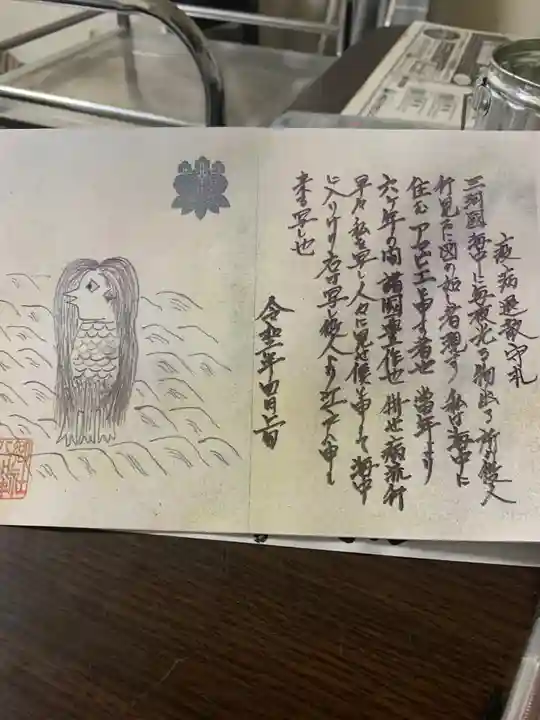 疫病退散守札
三河國海中に毎夜光る物出る所之役人
行見るに図の如く者現す 私は海中に
住む アマビエと申す者也 當年より
六ヶ年の間 諸國豊作也 併せ病流行
早々私を写し人々に見せ候と申して海中
に入りけり 右は写し役人より江戸へ申し
来る写し也
令和二年四月二日